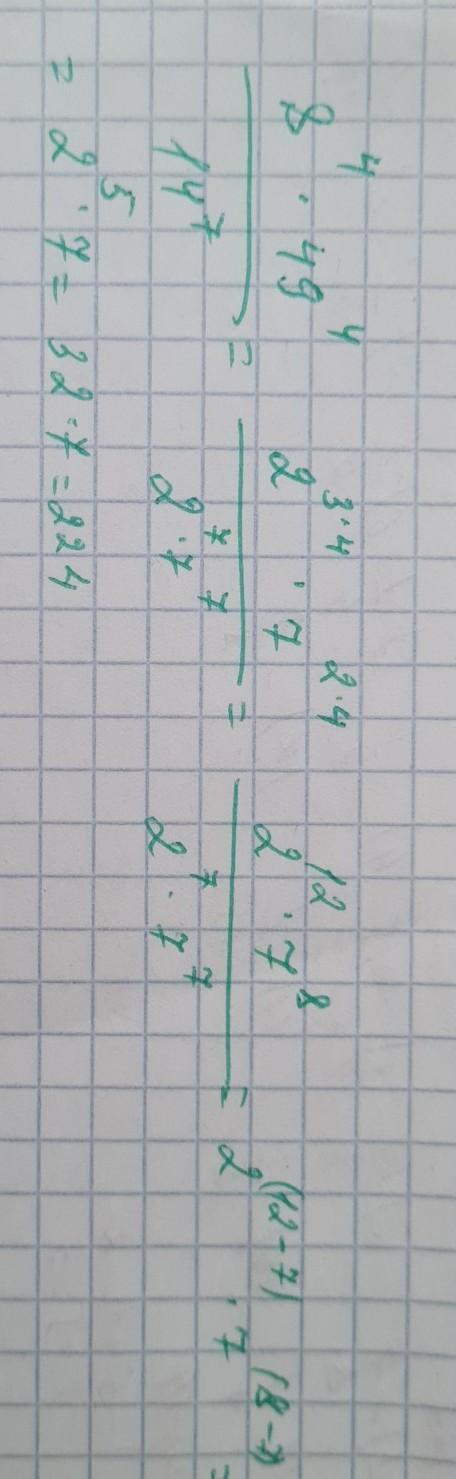 8⁴ · 49⁴ / 14⁷ = 2³·⁴ · 7²·⁴ / 2⁷ · 7⁷ = 2¹² · 7⁸ / 2⁷ · 7⁷ = 2⁽¹²⁻⁷⁾ · 7⁽⁸⁻⁷⁾ =
= 2⁵ · 7 = 32 · 7 = 224